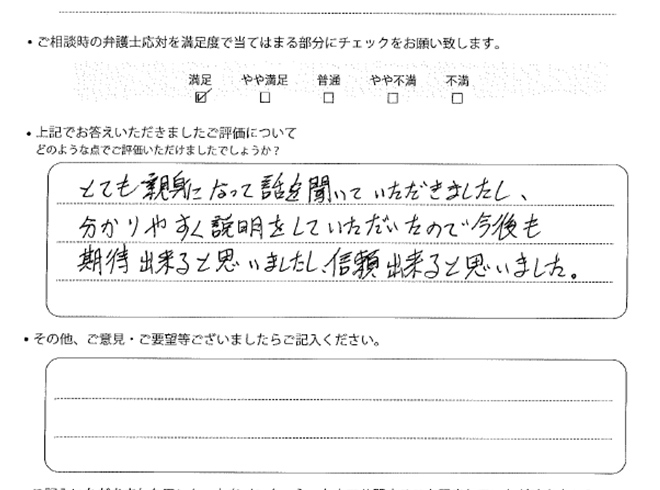 • ご相談時の弁護士応対を満足度で当てはまる部分にチェックをお願い致します。
満足 やや満足 普通 やや不満 不満
• 上記でお答えいただきましたご評価について
どのような点でご評価いただけましたでしょうか？
とても親身になって話を聞いていただきましたし、
分かりやすく説明をしていただいたので今後も
期待出来ると思いましたし、信頼出来ると思いました。
• その他、ご意見・ご要望等ございましたらご記入ください。